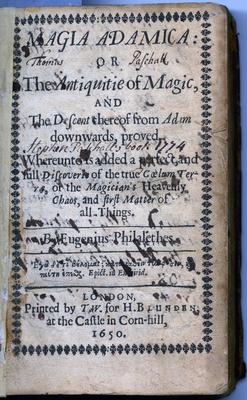 MAGIA ADAMICA:
OR
Thomas Paschall
The Antiquitie of Magic,
AND
The Descent thereof from Adam
downwards, proved.
Stephen Paschalls book 1774
Whereunto is added a perfect, and
full Discoverie of the true Cœlum Ter-
ræ, or the Magician's Heavenly
Chaos, and first Matter of
all Things.
By Eugenius Philalethes.
Epict. in Enchirid.
LONDON,
Printed by T.W. for H.BLUNDEN,
at the Castle in Corn-hill,
1650.